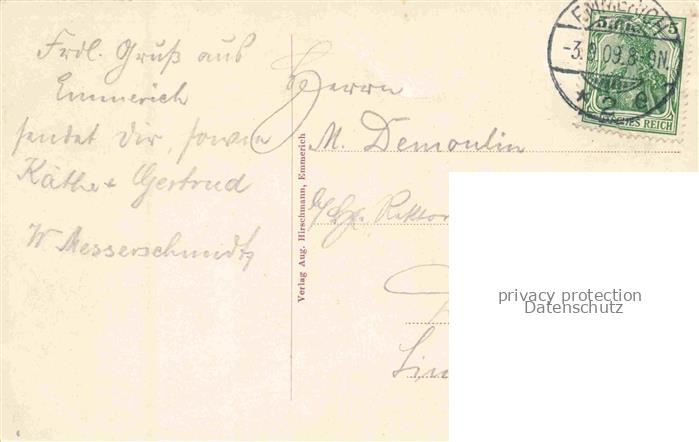 Frdl. Gruß aus
Emmerich
sendet Dir, sowie
Käthe + Gertrud
W Messerschmidt
Verlag Aug. Hirschmann, Emmerich
Herrn
M. Demoulin
Rektor
EMMERICH
-3.9.09.8-9N.
* 2 c
5
REICH
privacy protection
Datenschutz